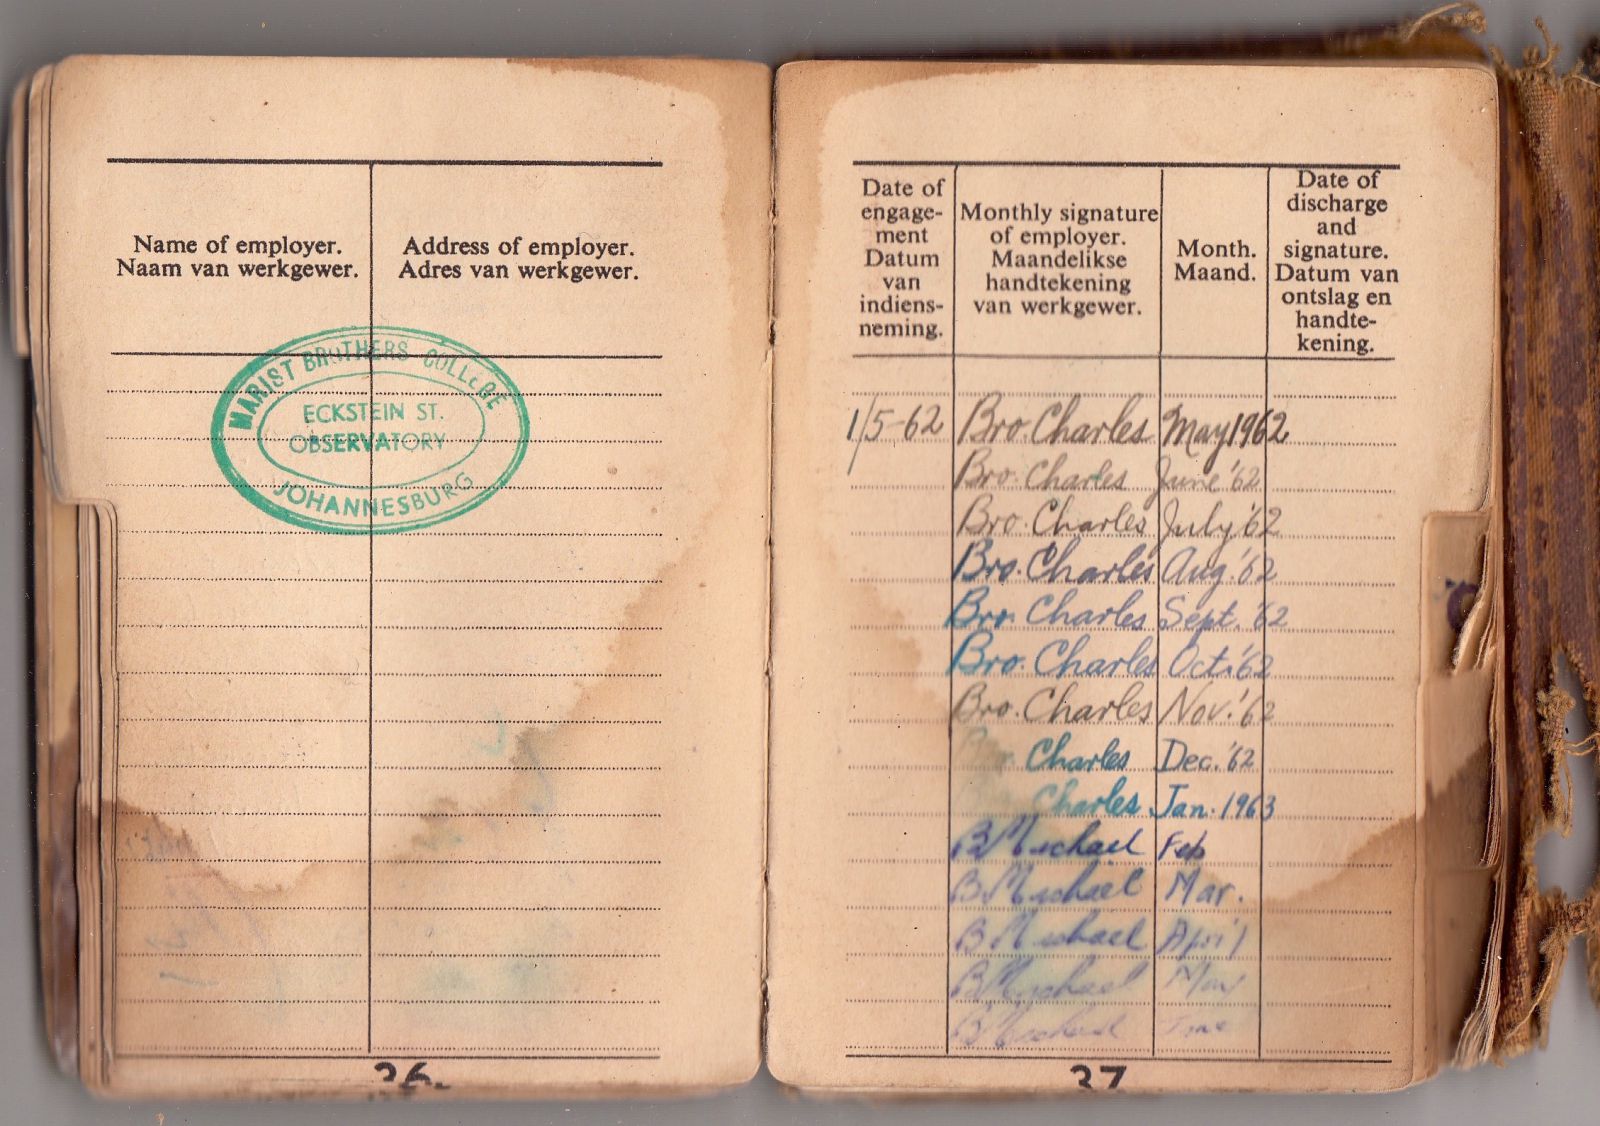 Name of employer.
Naam van werkgewer.
Address of employer.
Adres van werkgewer.
MARIST BROTHERS COLLEGE
ECKSTEIN ST.
OBSERVATORY
JOHANNESBURG
36
Date of
engage-
ment
Datum
van
indiens-
neming.
Monthly signature
of employer.
Maandelikse
handtekening
van werkgewer.
Month.
Maand.
Date of
discharge
and
signature.
Datum van
ontslag en
handte-
kening.
1/5-62 Bro. Charles May 1962
Bro. Charles June '62
Bro. Charles July '62
Bro. Charles Aug. '62
Bro. Charles Sept. '62
Bro. Charles Oct. '62
Bro. Charles Nov. '62
Bro. Charles Dec. '62
Charles Jan. 1963
B Michael Feb
B Michael Mar.
B Michael April
B Michael May
B Michael June
37